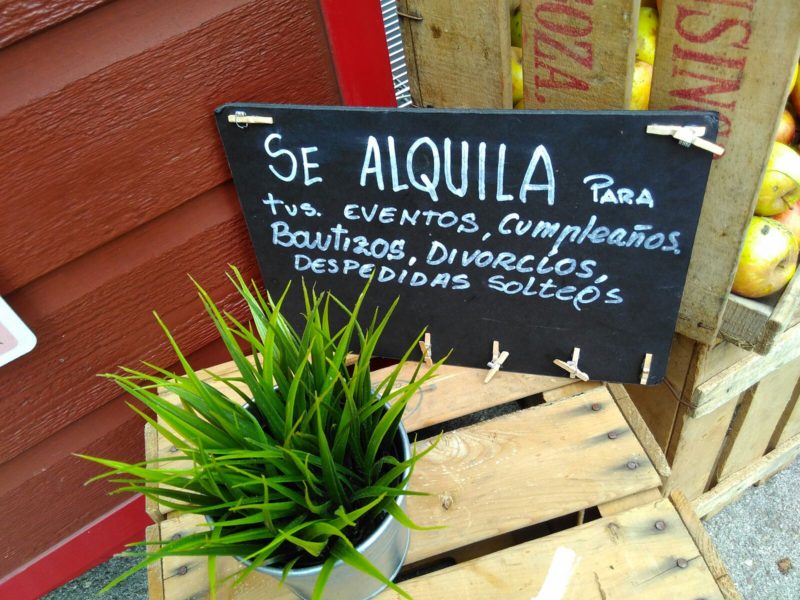 SE ALQUILA PARA
tus. EVENTOS, Cumpleaños.
Bautizos, DIVORCIOS,
DESPEDIDAS SolteROS
OZA.
USINS